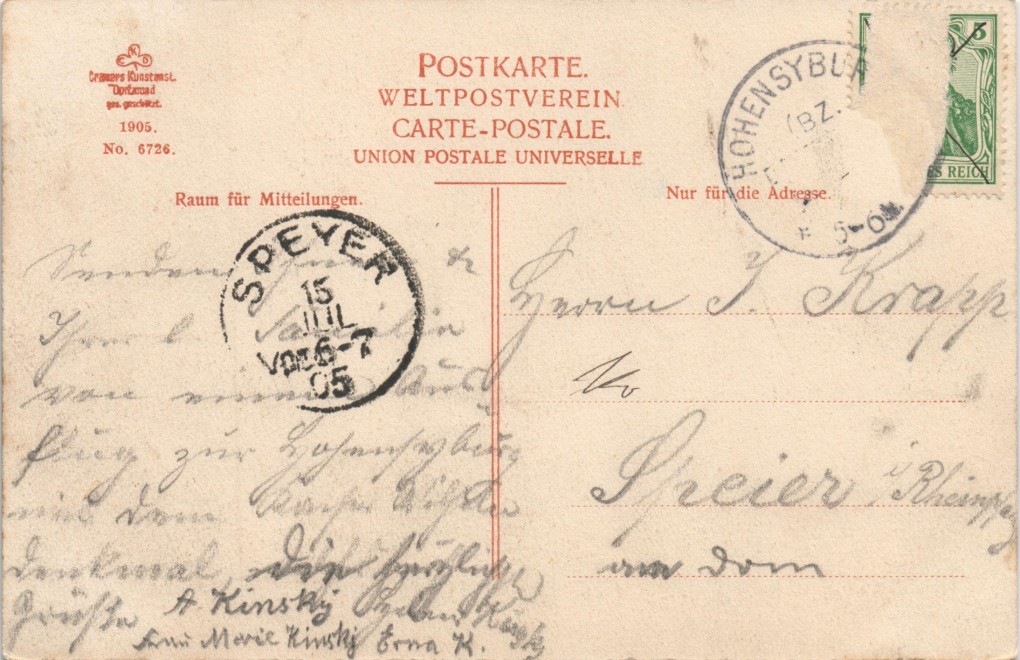 Cramers Kunstanst.
Dortmund
ges. geschützt.
1905.
No. 6726.
POSTKARTE.
WELTPOSTVEREIN
CARTE-POSTALE.
UNION POSTALE UNIVERSELLE
Raum für Mitteilungen.
Nur für die Adresse.
HOHENSYBUR
(BZ.
5-6
5
ES REICH
SPEYER
15
JUL
Vor 6-7
05
Senden Ihnen &
Ihrer l. Familie
von einem Aus-
flug zur Hohensyburg
mit dem Kaiser Wilhelm
denkmal, die herzlichsten
Grüße
A Kinsky
Frau Marie Kinsky Erna K.
Herrn J. Krapp
Speier i/Rheinpfalz
am dom